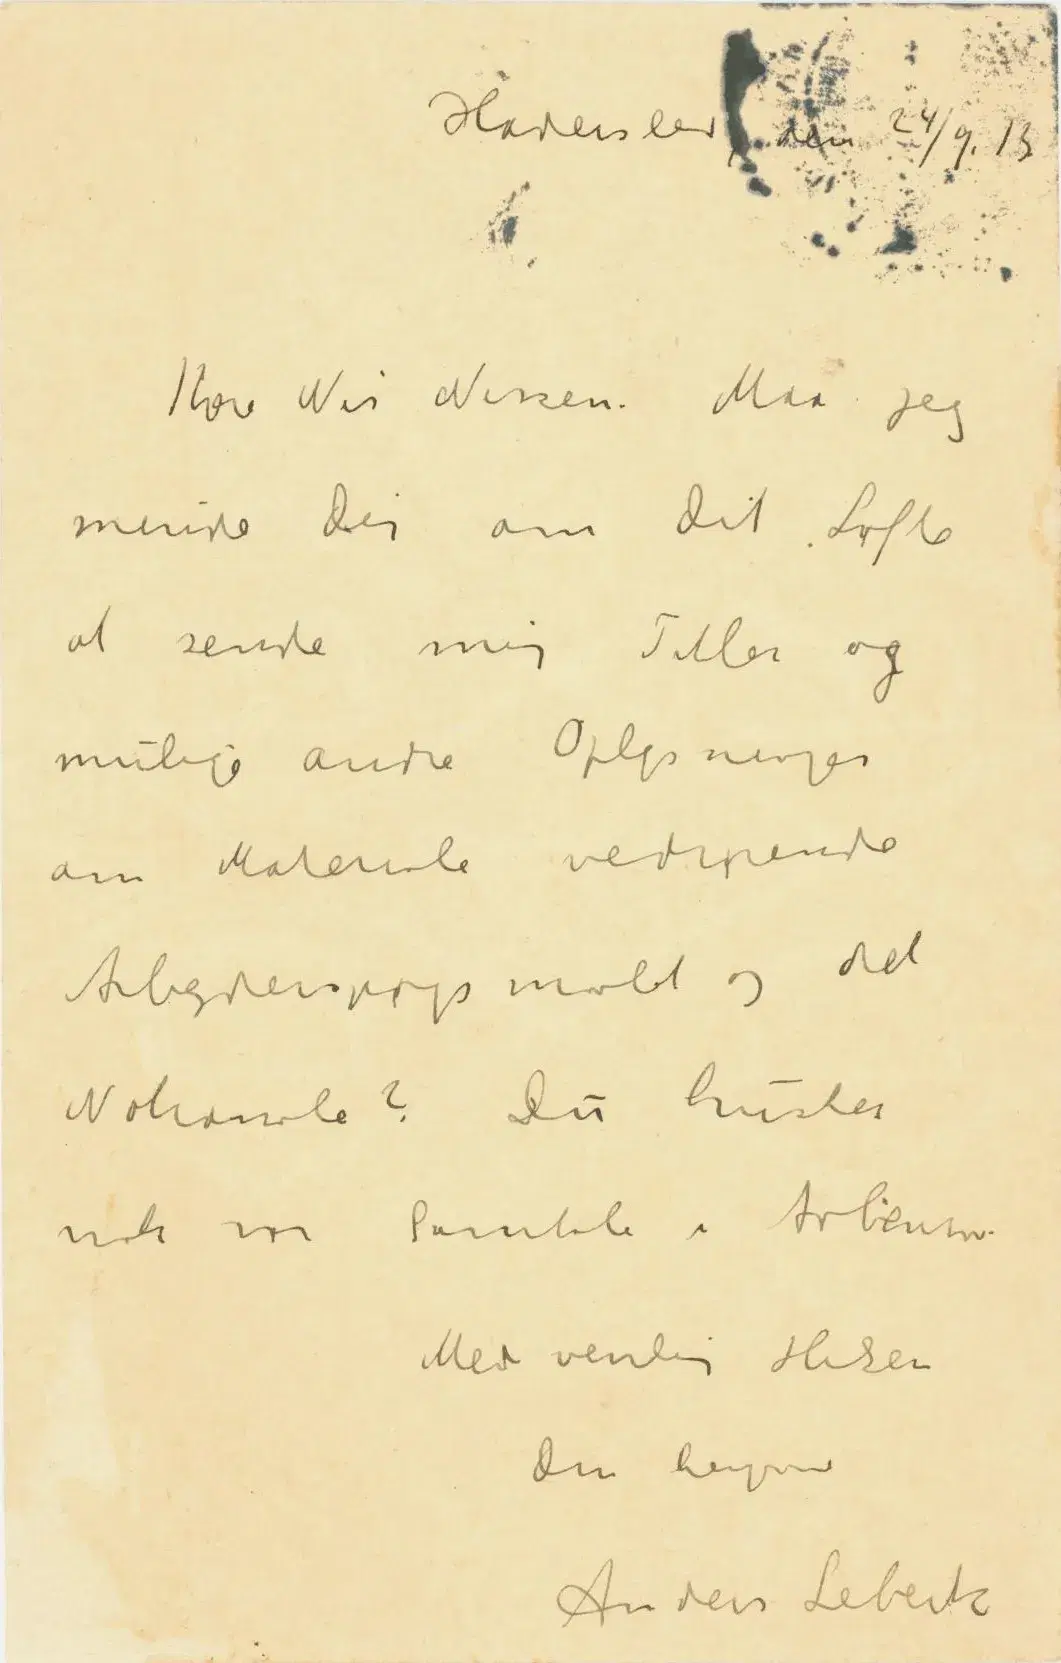 Haderslev, den 24/9. 13
Kære Nis Nissen. Maa jeg
minde Dig om Dit Løfte
at sende mig Titler og
mulige andre Oplysninger
om Materiale vedrørende
Arbejderspørgsmaalet og det
Nationale? Du husker
nok vor Samtale i
Med venlig Hilsen
Din hengivne
Anders Lebeck